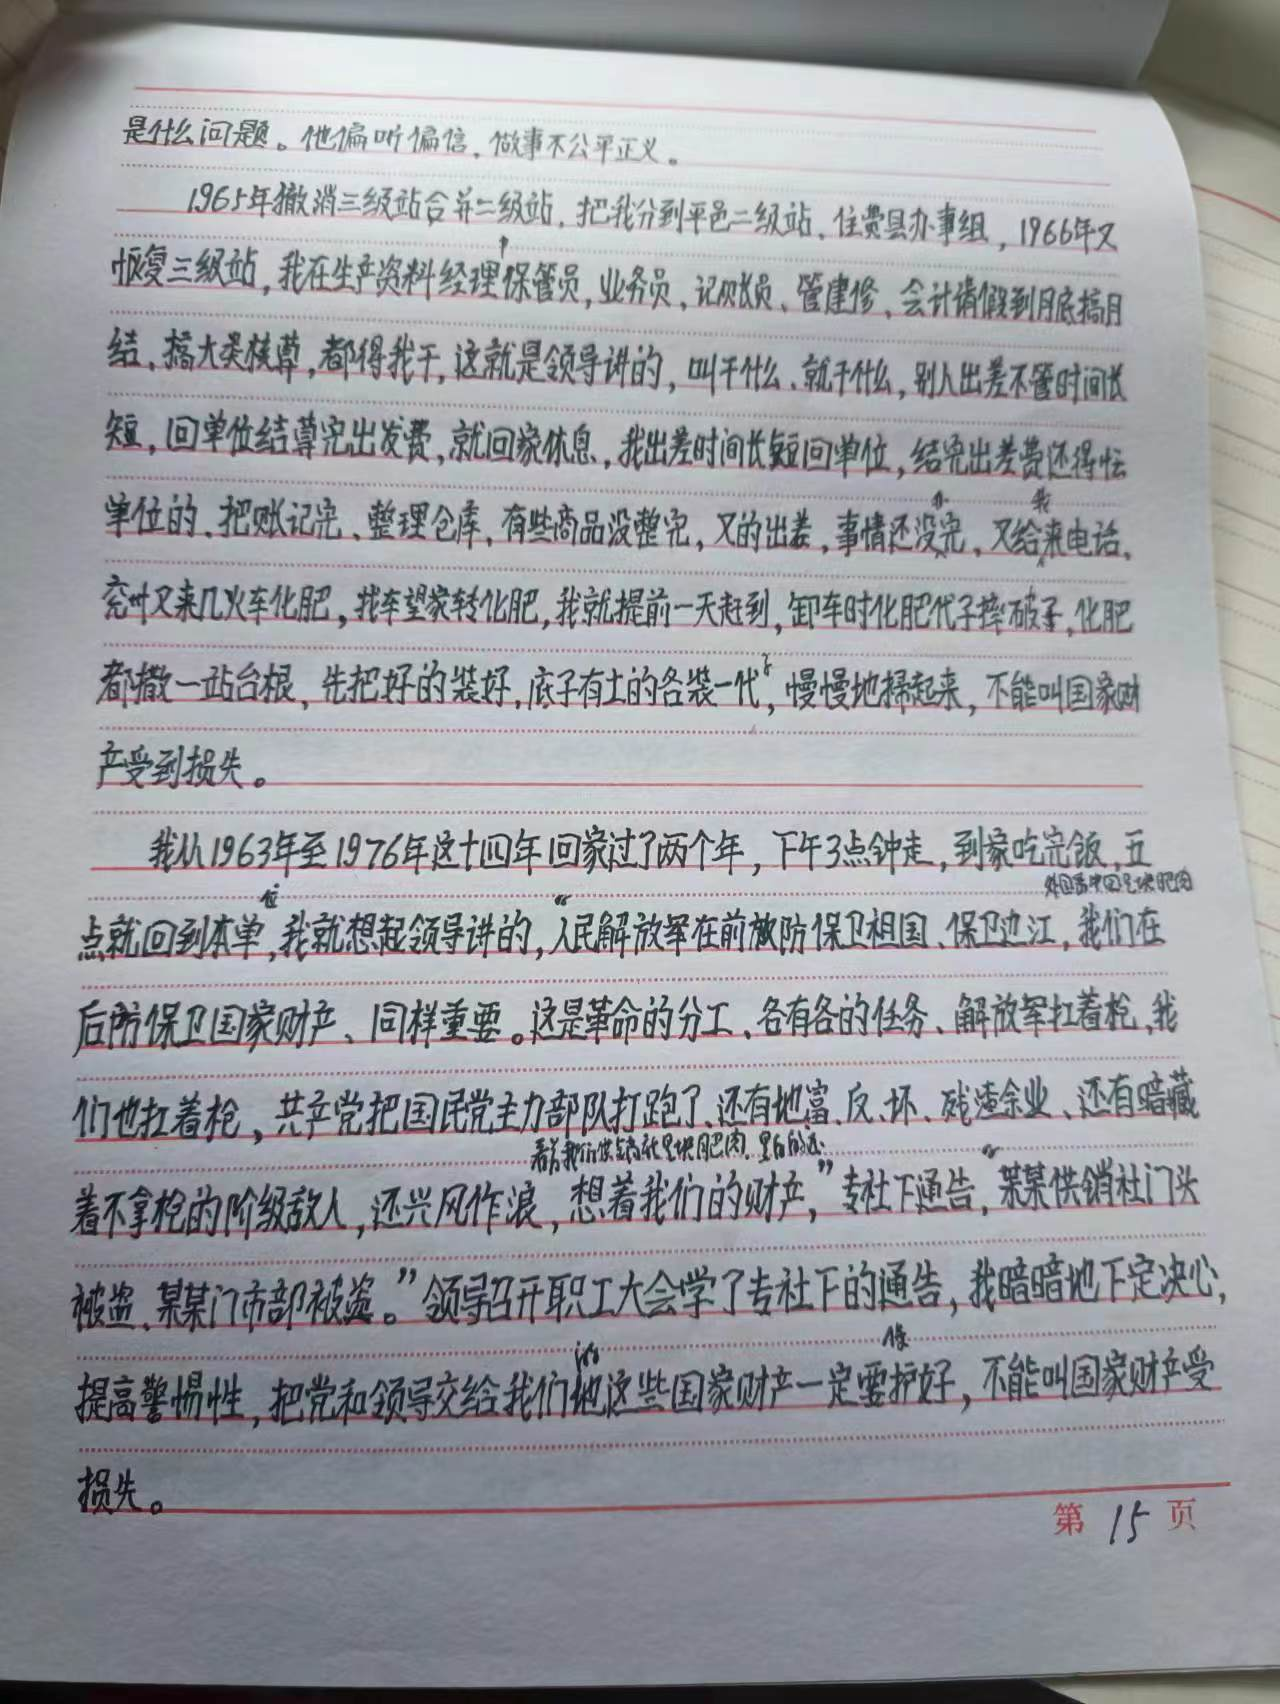 是什么问题。他偏听偏信，做事不公平正义。
1965年撤消三级站合并二级站，把我分到平邑二级站，住费县办事组，1966年又
恢复三级站，我在生产资料经理保管员，业务员、记账员、管建修、会计请假到月底搞月
结，搞大类核算，都得我干，这就是领导讲的，叫干什么、就干什么，别人出差不管时间长
短，回单位结算完出发费，就回家休息，我出差时间长短回单位，结完出差费还得忙
单位的、把账记完、整理仓库，有些商品没整完，又的出差，事情还没办完，又给我来电话，
兖州又来几火车化肥，找车望家转化肥，我就提前一天赶到，卸车时化肥代子摔破了，化肥
都撒一站台根，先把好的装好，底子有土的各装一代子，慢慢地掃起来，不能叫国家财
产受到损失。
我从1963年至1976年这十四年回家过了两个年，下午3点钟走，到家吃完饭，五
外国看中国是块肥肉
点就回到本单位，我就想起领导讲的，“人民解放军在前敌防保卫祖国、保卫边江，我们在
后防保卫国家财产、同样重要。这是革命的分工、各有各的任务、解放军扛着枪，我
们也扛着枪，共产党把国民党主力部队打跑了、还有地富、反、坏、残渣余业、还有暗藏
看着我们供销社是块肥肉，
着不拿枪的阶级敌人，还兴风作浪，想着我们的财产，”专社下通告，“某某供销社门头
被盗、某某门市部被盗。”领导召开职工大会学了专社下的通告，我暗暗地下定决心，
提高警惕性，把党和领导交给我们的这些国家财产一定要保护好，不能叫国家财产受
损失。
第 15 页